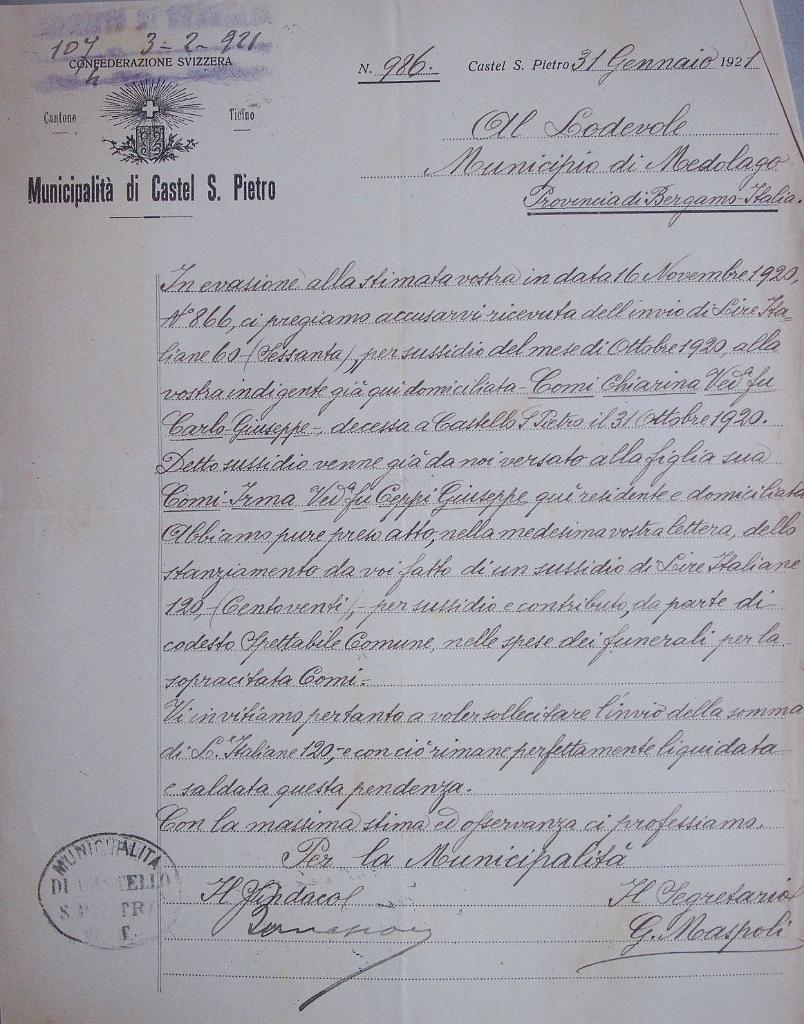 107 3-2-921
CONFEDERAZIONE SVIZZERA
Cantone Ticino
Municipalità di Castel S. Pietro
N. 986. Castel S. Pietro 31 Gennaio 1921
Al Lodevole
Municipio di Medolago
Provincia di Bergamo-Italia.
In evasione alla stimata vostra in data 16 Novembre 1920,
N° 866, ci pregiamo accusarvi ricevuta dell'invio di Lire Ita-
liane 60-(Sessanta), per sussidio del mese di Ottobre 1920, alla
vostra indigente già qui domiciliata-Comi Chiarina Vedª fu
Carlo-Giuseppe-, decessa a Castello S Pietro il 31 Ottobre 1920.
Detto sussidio venne già da noi versato alla figlia sua
Comi-Irma Vedª fu Ceppi Giuseppe qui residente e domiciliata
Abbiamo pure preso atto, nella medesima vostra lettera, dello
stanziamento da voi fatto di un sussidio di Lire Italiane
120,-(Centoventi),-per sussidio e contributo, da parte di
codesto Spettabile Comune, nelle spese dei funerali per la
sopracitata Comi-
Vi invitiamo pertanto a voler sollecitare l'invio della somma
di L.e Italiane 120,-e con ciò rimane perfettamente liquidata
e saldata questa pendenza.
Con la massima stima ed osservanza ci professiamo.
Per la Municipalità
Il Sindaco Il Segretario
G. Maspoli
MUNICIPALITÀ
DI CASTELLO
S. PIETRO